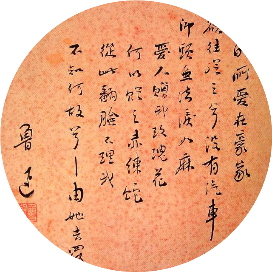 所愛在豪家
往從之兮沒有汽車
仰頭無法淚如麻
愛人贈我玫瑰花
何以贈之赤練蛇
從此翻臉不理我
不知何故兮——由她去罷
魯迅